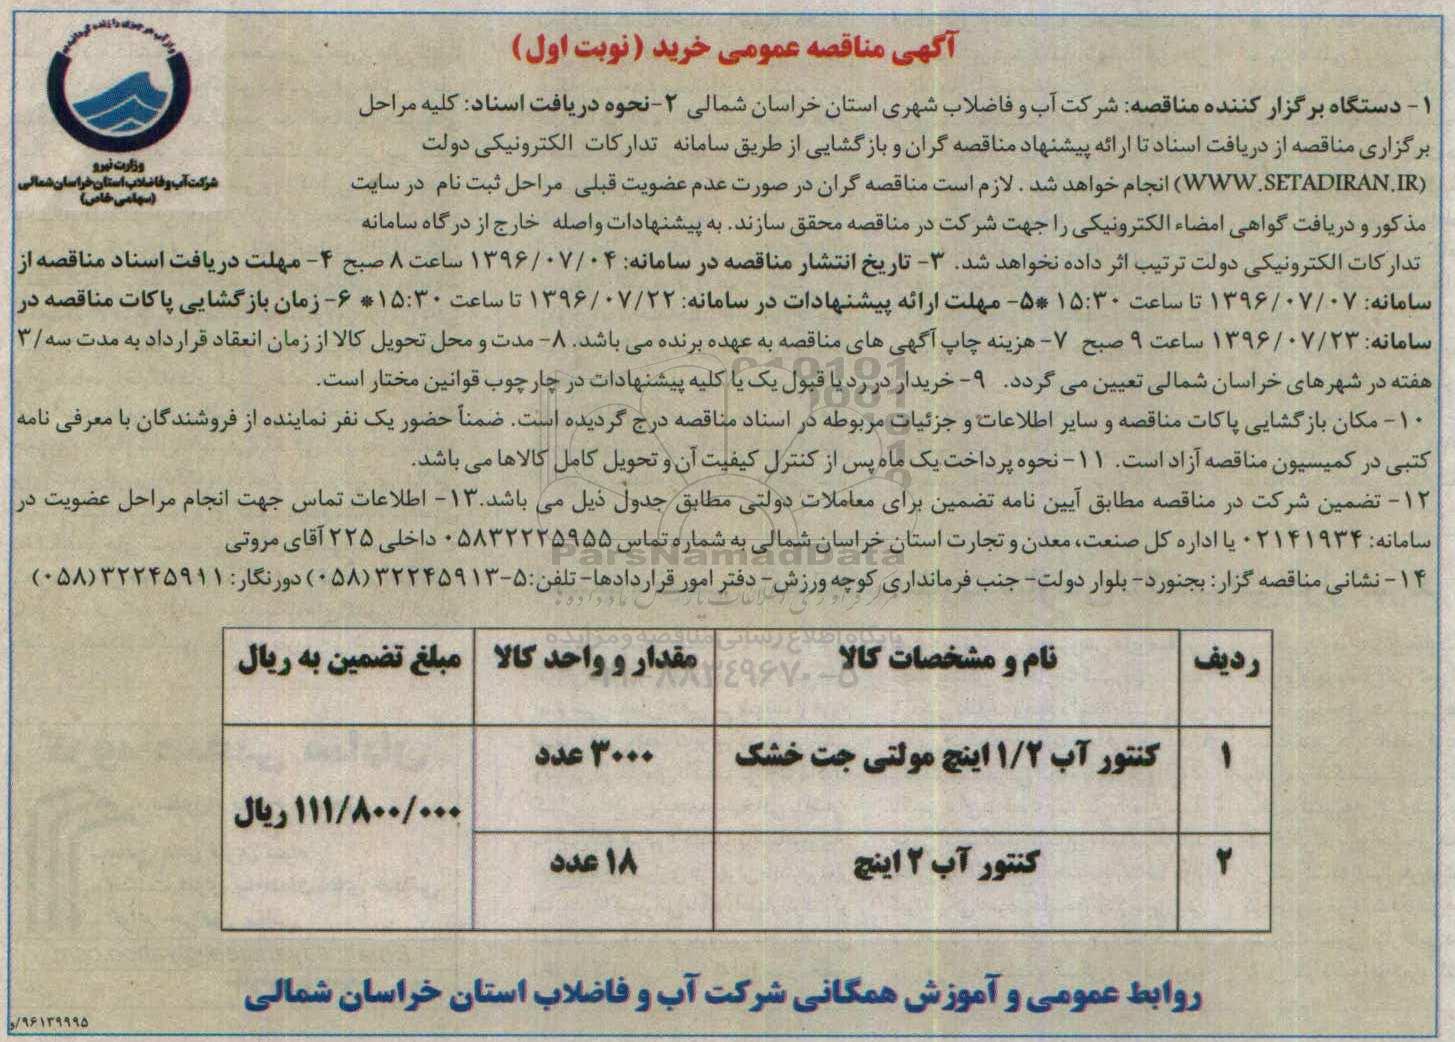 آگهی مناقصه عمومی خرید (نوبت اول)
وزارت نیرو
شرکت آب و فاضلاب استان خراسان شمالی
(سهامی خاص)
۱- دستگاه برگزار کننده مناقصه: شرکت آب و فاضلاب شهری استان خراسان شمالی ۲-نحوه دریافت اسناد: کلیه مراحل
برگزاری مناقصه از دریافت اسناد تا ارائه پیشنهاد مناقصه گران و بازگشایی از طریق سامانه تدارکات الکترونیکی دولت
(WWW.SETADIRAN.IR) انجام خواهد شد . لازم است مناقصه گران در صورت عدم عضویت قبلی مراحل ثبت نام در سایت
مذکور و دریافت گواهی امضاء الکترونیکی را جهت شرکت در مناقصه محقق سازند. به پیشنهادات واصله خارج از درگاه سامانه
تدارکات الکترونیکی دولت ترتیب اثر داده نخواهد شد. ۳- تاریخ انتشار مناقصه در سامانه: ۱۳۹۶/۰۷/۰۴ ساعت ۸ صبح ۴- مهلت دریافت اسناد مناقصه از
سامانه: ۱۳۹۶/۰۷/۰۷ تا ساعت ۱۵:۳۰ *۵- مهلت ارائه پیشنهادات در سامانه: ۱۳۹۶/۰۷/۲۲ تا ساعت ۱۵:۳۰* ۶- زمان بازگشایی پاکات مناقصه در
سامانه: ۱۳۹۶/۰۷/۲۳ ساعت ۹ صبح ۷- هزینه چاپ آگهی های مناقصه به عهده برنده می باشد. ۸- مدت و محل تحویل کالا از زمان انعقاد قرارداد به مدت سه/۳
هفته در شهرهای خراسان شمالی تعیین می گردد. ۹- خریدار در رد یا قبول یک یا کلیه پیشنهادات در چارچوب قوانین مختار است.
۱۰- مکان بازگشایی پاکات مناقصه و سایر اطلاعات و جزئیات مربوطه در اسناد مناقصه درج گردیده است. ضمناً حضور یک نفر نماینده از فروشندگان با معرفی نامه
کتبی در کمیسیون مناقصه آزاد است. ۱۱- نحوه پرداخت یک ماه پس از کنترل کیفیت آن و تحویل کامل کالاها می باشد.
۱۲- تضمین شرکت در مناقصه مطابق آیین نامه تضمین برای معاملات دولتی مطابق جدول ذیل می باشد.۱۳- اطلاعات تماس جهت انجام مراحل عضویت در
سامانه: ۰۲۱۴۱۹۳۴ یا اداره کل صنعت، معدن و تجارت استان خراسان شمالی به شماره تماس ۰۵۸۳۲۲۲۵۹۵۵ داخلی ۲۲۵ آقای مروتی
۱۴- نشانی مناقصه گزار: بجنورد- بلوار دولت- جنب فرمانداری کوچه ورزش- دفتر امور قراردادها- تلفن:۵-۳۲۲۴۵۹۱۳(۰۵۸) دورنگار: ۳۲۲۴۵۹۱۱(۰۵۸)
ParsNamadData
پایگاه اطلاع رسانی مناقصه و مزایده
ردیف نام و مشخصات کالا مقدار و واحد کالا مبلغ تضمین به ریال
۱ کنتور آب ۱/۲ اینچ مولتی جت خشک ۳۰۰۰ عدد
۱۱۱/۸۰۰/۰۰۰ ریال
۲ کنتور آب ۲ اینچ ۱۸ عدد
روابط عمومی و آموزش همگانی شرکت آب و فاضلاب استان خراسان شمالی
۹۶۱۳۹۹۹۵/و